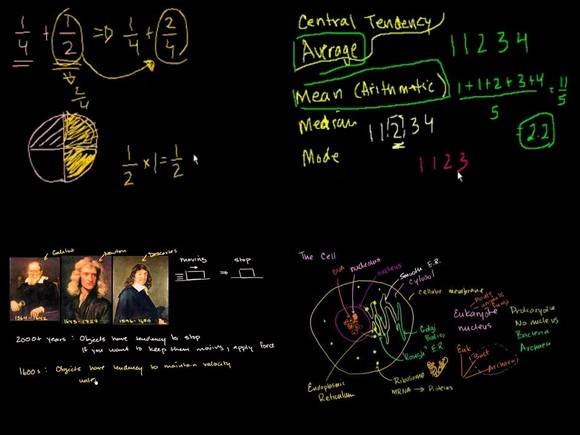 1/4 + 1/2 => 1/4 + 2/4
2/4
1/2 × 1 = 1/2
Central Tendency
Average
1 1 2 3 4
Mean (Arithmatic)
1+1+2+3+4/5 = 11/5
= 2.2
Median
1 1 2 3 4
Mode
1 1 2 3
Galileo
Newton
Descartes
moving
stop
1564-1642
1643-1727
1596-1650
2000+ years : Objects have tendency to stop
If you want to keep them moving, apply force
1600s : Objects have tendency to maintain velocity
The Cell
DNA
nucleolus
nucleus
Smooth E.R.
cytosol
cellular membrane
Eukaryotic
nucleus
Prokaryotic
No nucleus
Bacteria
Archaea
Golgi
Bodies
Rough E.R.
Euk
Bact
Archaea
Endoplasmic
Reticulum
Ribosome
mRNA → Proteins